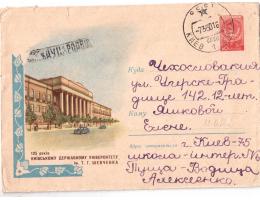 КИЕВ
Куда Чехословакия
ул. Угерске Гра-
дище 142. 12-лет.
Кому Яшковой
Елене.
Адрес отправителя г. Киев-75
школа-интер №
Пуща-Водица
Алексеенко.
125 років
КИЇВСЬКОМУ ДЕРЖАВНОМУ УНІВЕРСИТЕТУ
ім. Т. Г. ШЕВЧЕНКА